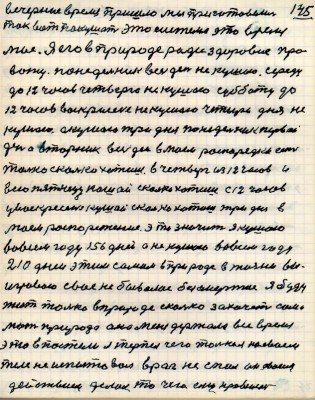 145
вечернее время пришло мы приготовили
так вот покушат это система это время
мое. Я его в природе ради здоровие про
вожу. понеделник весь ден не кушаю. среду
до 12 часов четверга не кушаю субботу до
12 часов воскресене не кушаю четыри дня не
кушаю. а кушаю три дня понеделник первый
вторник весь ден в моем распоредке
толко сколко хочеш. в четверг из 12 часов и
всю пятницу кошай сколко хочеш с 12 часов
у воскресене кушай сколко хочеш три дня в
моем распорежение. это значит я кушаю
вовсем году 156 дней а не кушаю вовсем году
210 дней этим самым в природе в жизни вы
игроваю свое не бывалае безсмертие я буду
жит толко в природе сколко захочет сама
мат природа она меня держала все время
это в постели я терпел чего толко на своем
теле не испитовал враг не спал
действием делал то чего